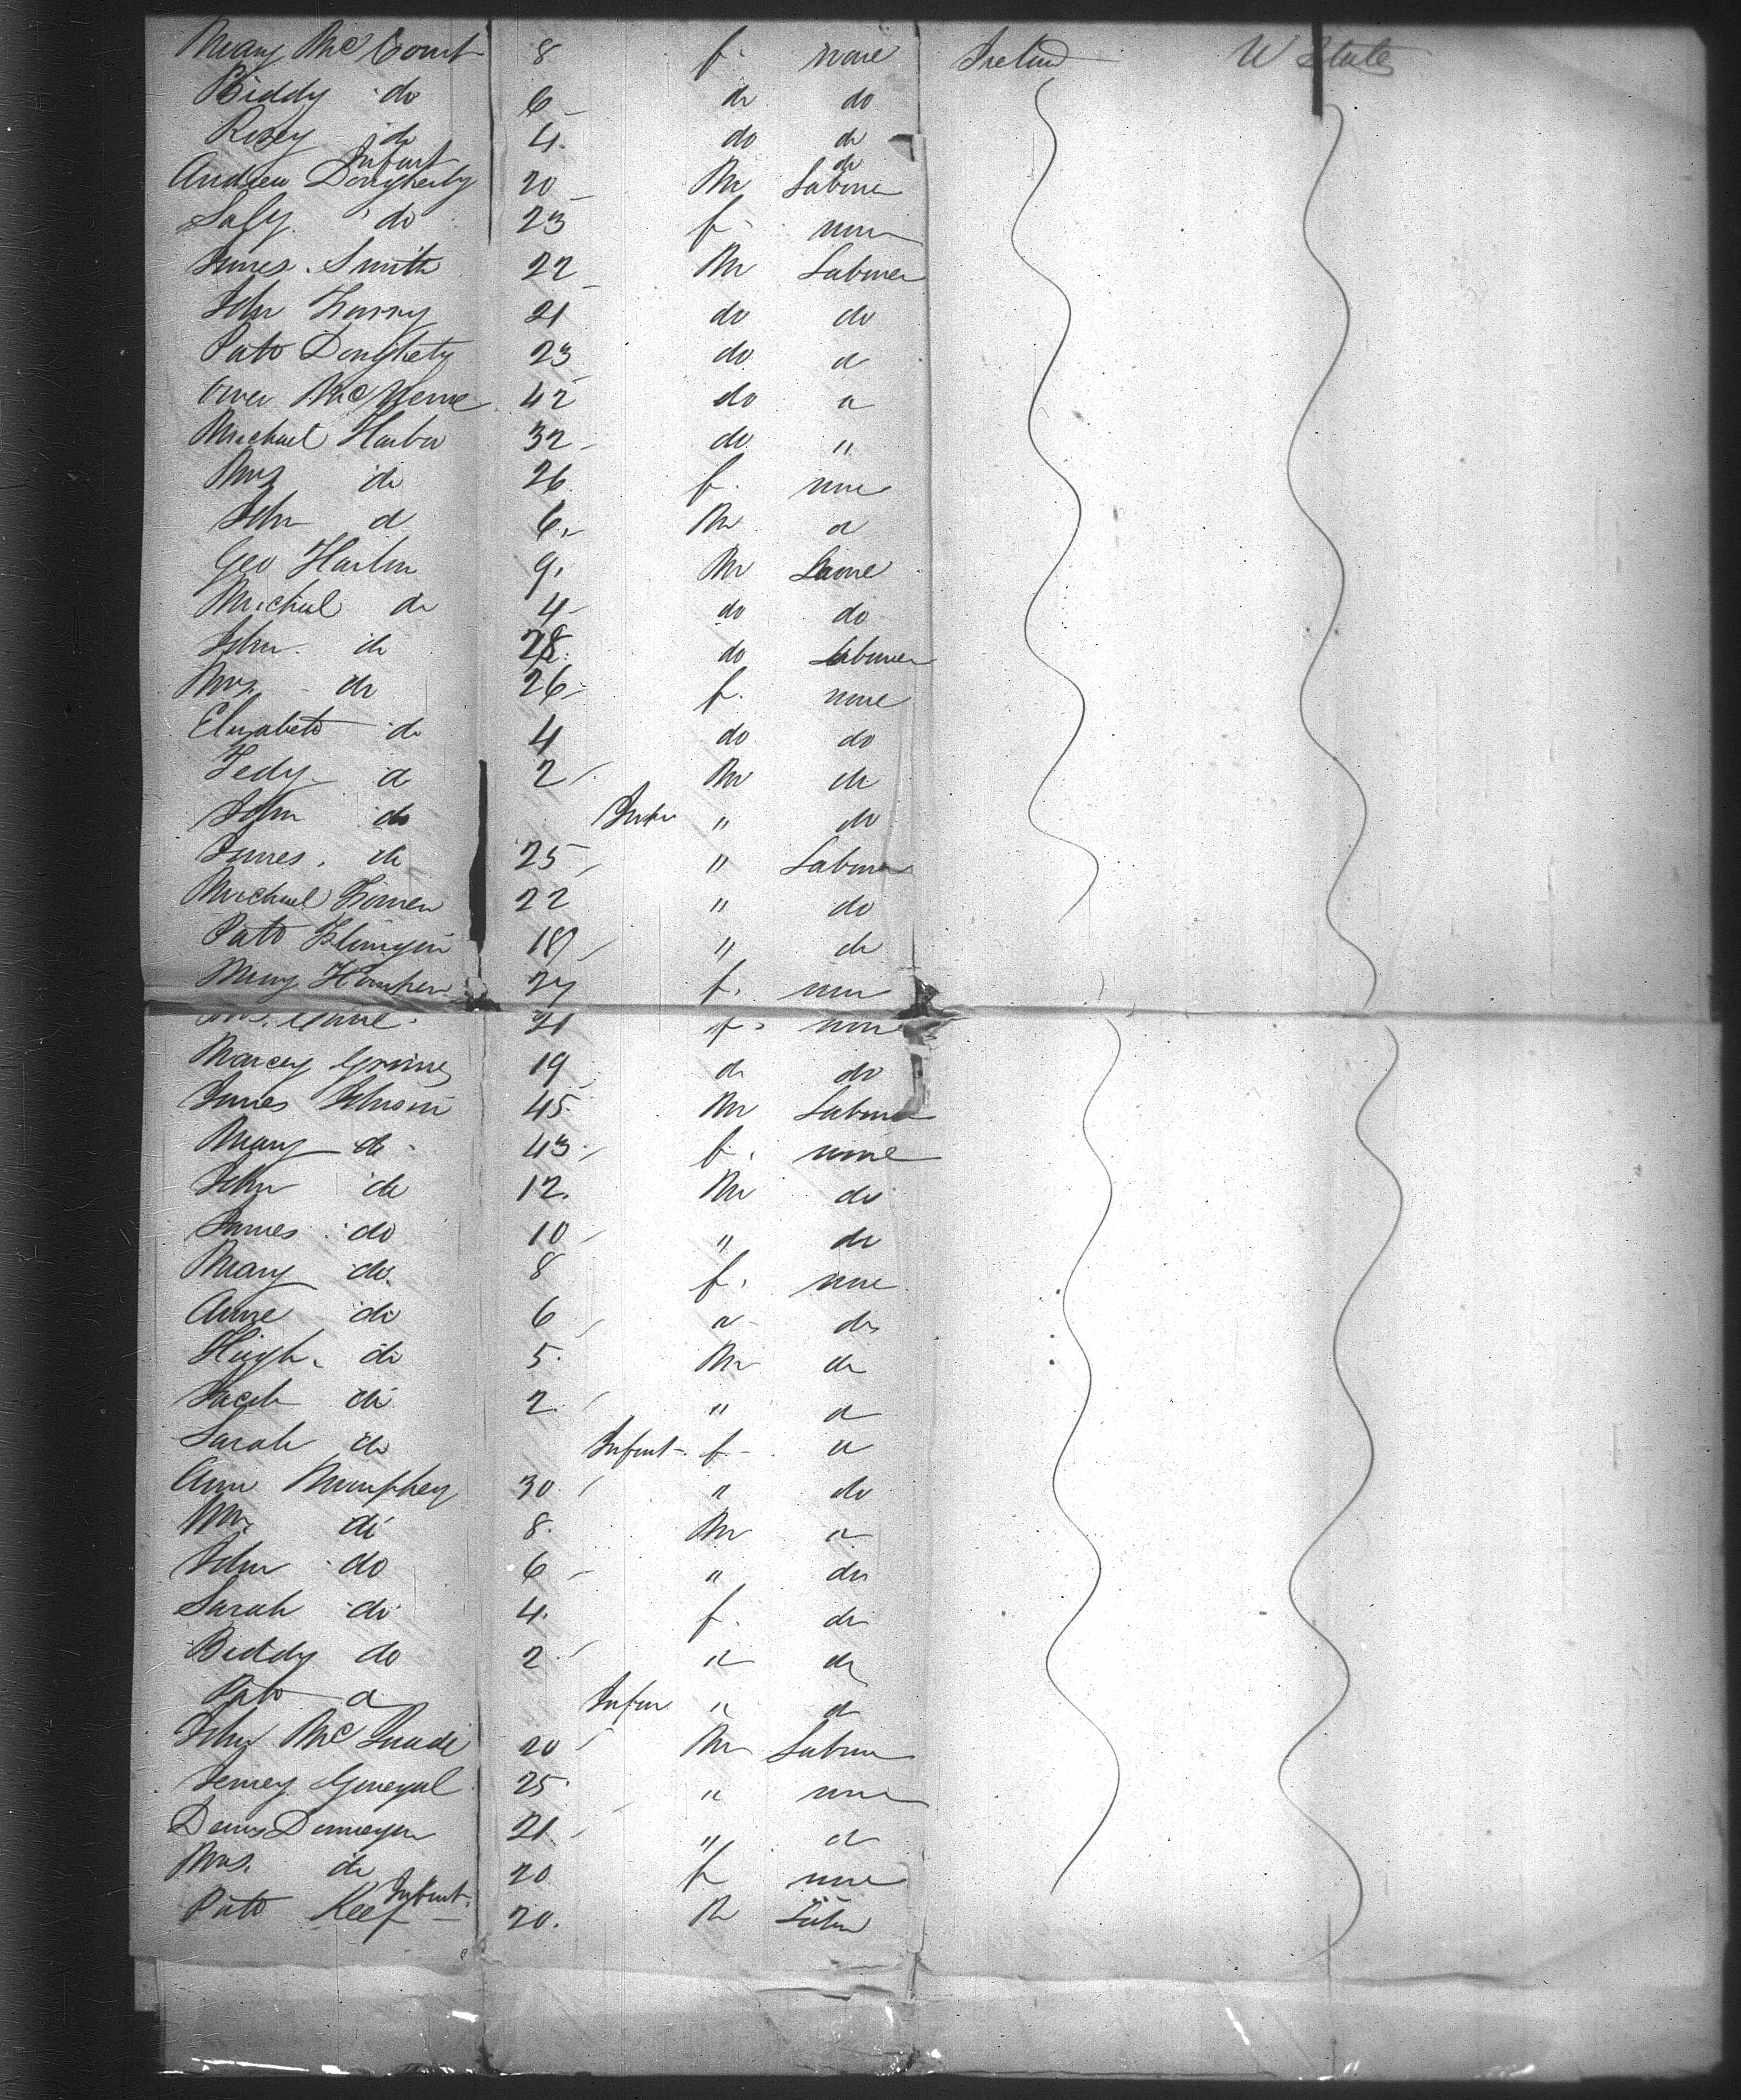 Mary McCourt 8 f. none Ireland U States
Biddy do 6 do do
Rosey do 4. do do
Infant do
Andrew Dougherty 20 M Laborer
Saly do 23 f none
James Smith 22 M Laborer
John 21 do do
Patk Doughety 23 do do
Owen Mc 42 do do
Michael Harbor 32 do "
Mrs do 26 f. none
John do 6 M do
Geo Harbor 9 M none
Michael do 4 do do
John do 28 do Laborer
Mrs. do 26 f. none
Elizabeth do 4 do do
Tedy do 2 M do
John do Infan " do
James. do 25 " Laborer
Michael 22 " do
Patk 18 " do
Mary 27 f. none
21 f. none
Grimes 19 do do
James Johnson 45 M Laborer
Mary do 43 f. none
John do 12. M do
James do 10 " do
Mary do 8 f. none
Anne do 6 " do
Hugh do 5. M do
Jacob do 2 " do
Sarah do Infant f do
Ann Mumphey 30 " do
Wm. do 8. M do
John do 6 " do
Sarah do 4. f. do
Biddy do 2 " do
Patk do Infan " do
John Mc Quade 20 M Labour
25 " none
Denis 21 " do
Mrs. do 20 f none
Infant
Patk Keef 20. M Labr